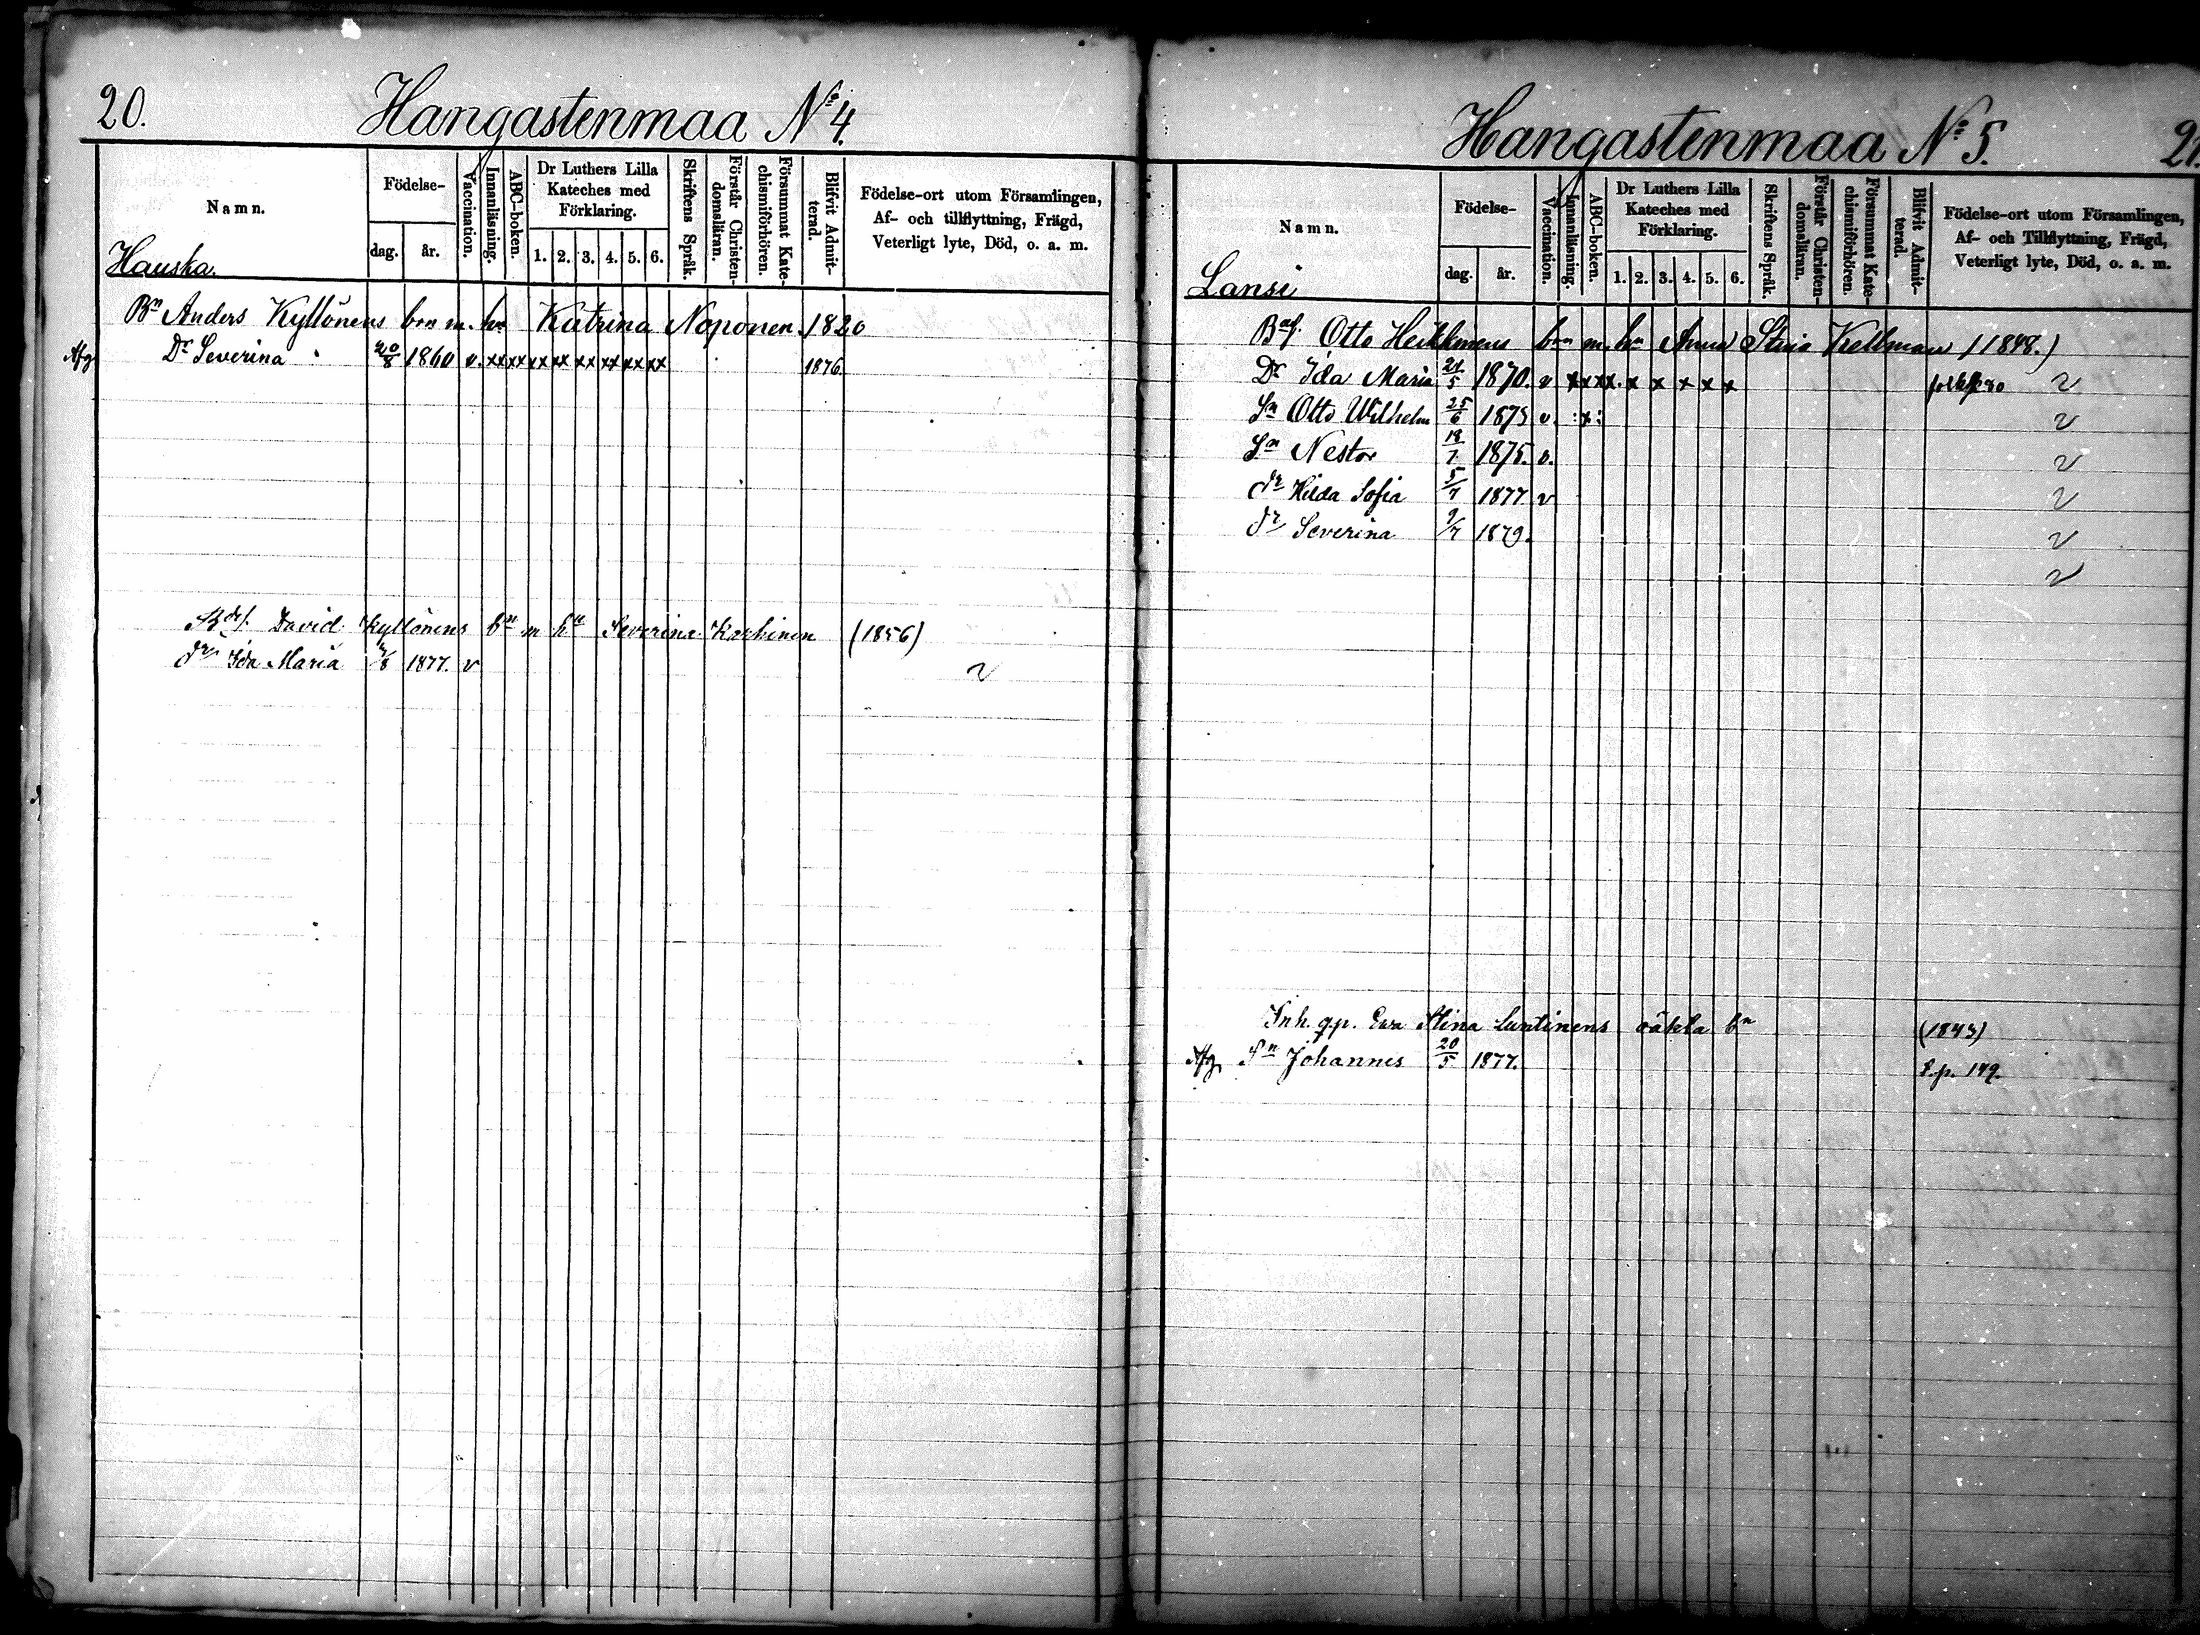 20.
Hangastenmaa No 4.
Namn.
Födelse-
dag. år.
Vaccination.
Innanläsning.
ABC-boken.
Dr Luthers Lilla
Kateches med
Förklaring.
1. 2. 3. 4. 5. 6.
Skriftens Språk.
Förstår Christen-
domsläran.
Försummat Kate-
chismiförhören.
Blifvit Admit-
terad.
Födelse-ort utom Församlingen,
Af- och tillflyttning, Frägd,
Veterligt lyte, Död, o. a. m.
Hauska.
Bn Anders Kyllönens brn m. hn Katrina Noponen. 1820
Afg Dr Severina 20/8 1860 v. xx xx xx xx xx xx xx xx 1876.
Bdf. David Kyllönens bn m hn Severina Karhinen (1856)
dr Ida Maria 1877. v
Hangastenmaa No 5.
21.
Namn.
Födelse-
dag. år.
Vaccination.
Innanläsning.
ABC-boken.
Dr Luthers Lilla
Kateches med
Förklaring.
1. 2. 3. 4. 5. 6.
Skriftens Språk.
Förstår Christen-
domsläran.
Försummat Kate-
chismiförhören.
Blifvit Admit-
terad.
Födelse-ort utom Församlingen,
Af- och Tillflyttning, Frägd,
Veterligt lyte, Död, o. a. m.
Lansi
Otto Heikkinens brn m. hn Anna Stina Kellman (1848.)
Dr Ida Maria 21/5 1870. v xx xx. x x x x x
Sn Otto Wilhelm 25/6 1873 v. :x:
Sn Nestor 1875. v.
dr Hilda Sofia 5/7 1877 v
dr Severina 9/7 1879.
Inh. qp. Eva Stina Luntinens oäkta bn (1843)
Afg Sn Johannes 20/5 1877. S.p. 149.